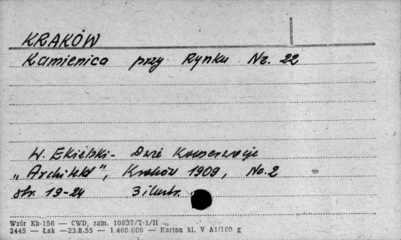 KRAKÓW
Kamienica przy Rynku Nr. 22
W. Ekielski - Dwie Konserwacje
„Architekt", Kraków 1909, No. 2
str. 19-24 3 ilustr.
Wzór Kb-156 — CWD, zam. 10837/I-1/H
2445 — Łak —23.8.55 — 1.400.000 — Karton kl. V A1/180 g